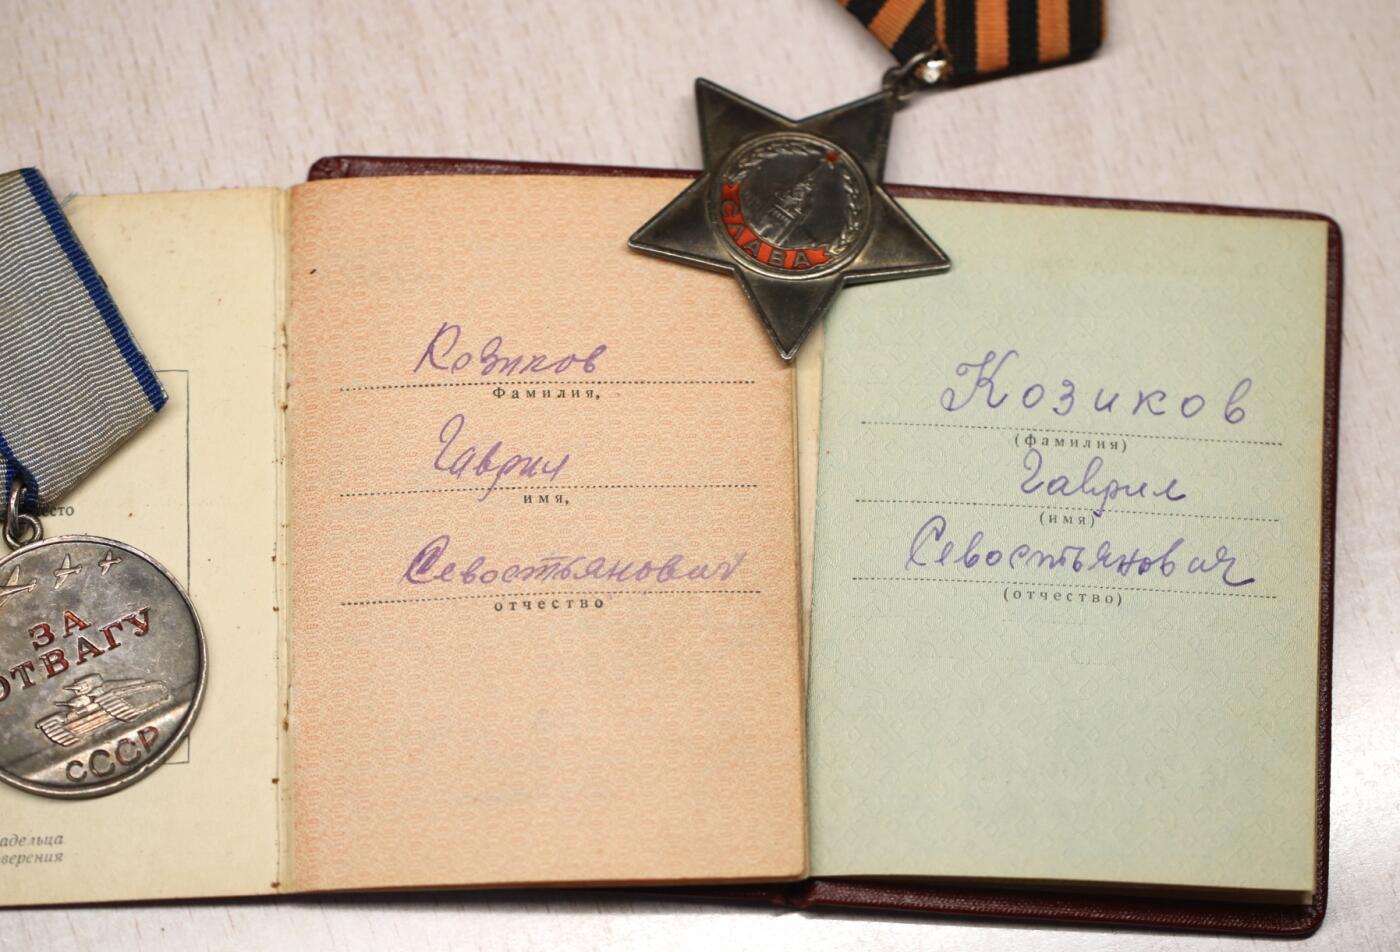 СЛАВА
место
ЗА
ОТВАГУ
СССР
адельца
верения
Козиков
Фамилия,
Гаврил
имя,
Севостьянович
отчество
Козиков
(фамилия)
Гаврил
(имя)
Севостьянович
(отчество)